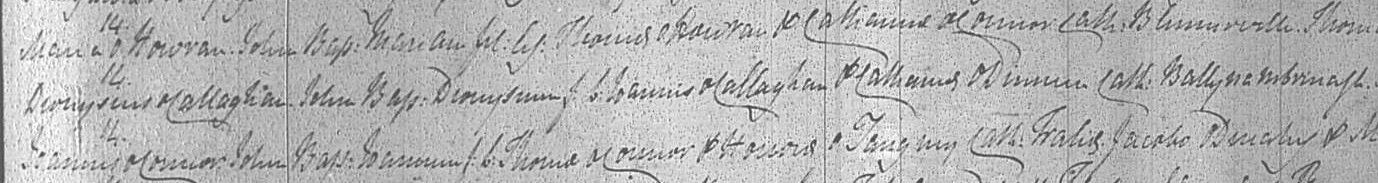 14
Maria O Howran. John Bap: Mariam fil: leg: Thomæ O Howran & Catharinæ O Connor Cath: Blennerville. Thom
14.
Dionysius O Callaghan. John Bap: Dionysium f. l. Joannis O Callaghan & Catharinæ O Dinneen Cath: Ballynambrenagh.
14.
Joannes O Connor John Bap: Joannem f. l. Thomæ O Connor & Honoræ O Cath: Traliæ. Jacobo & M